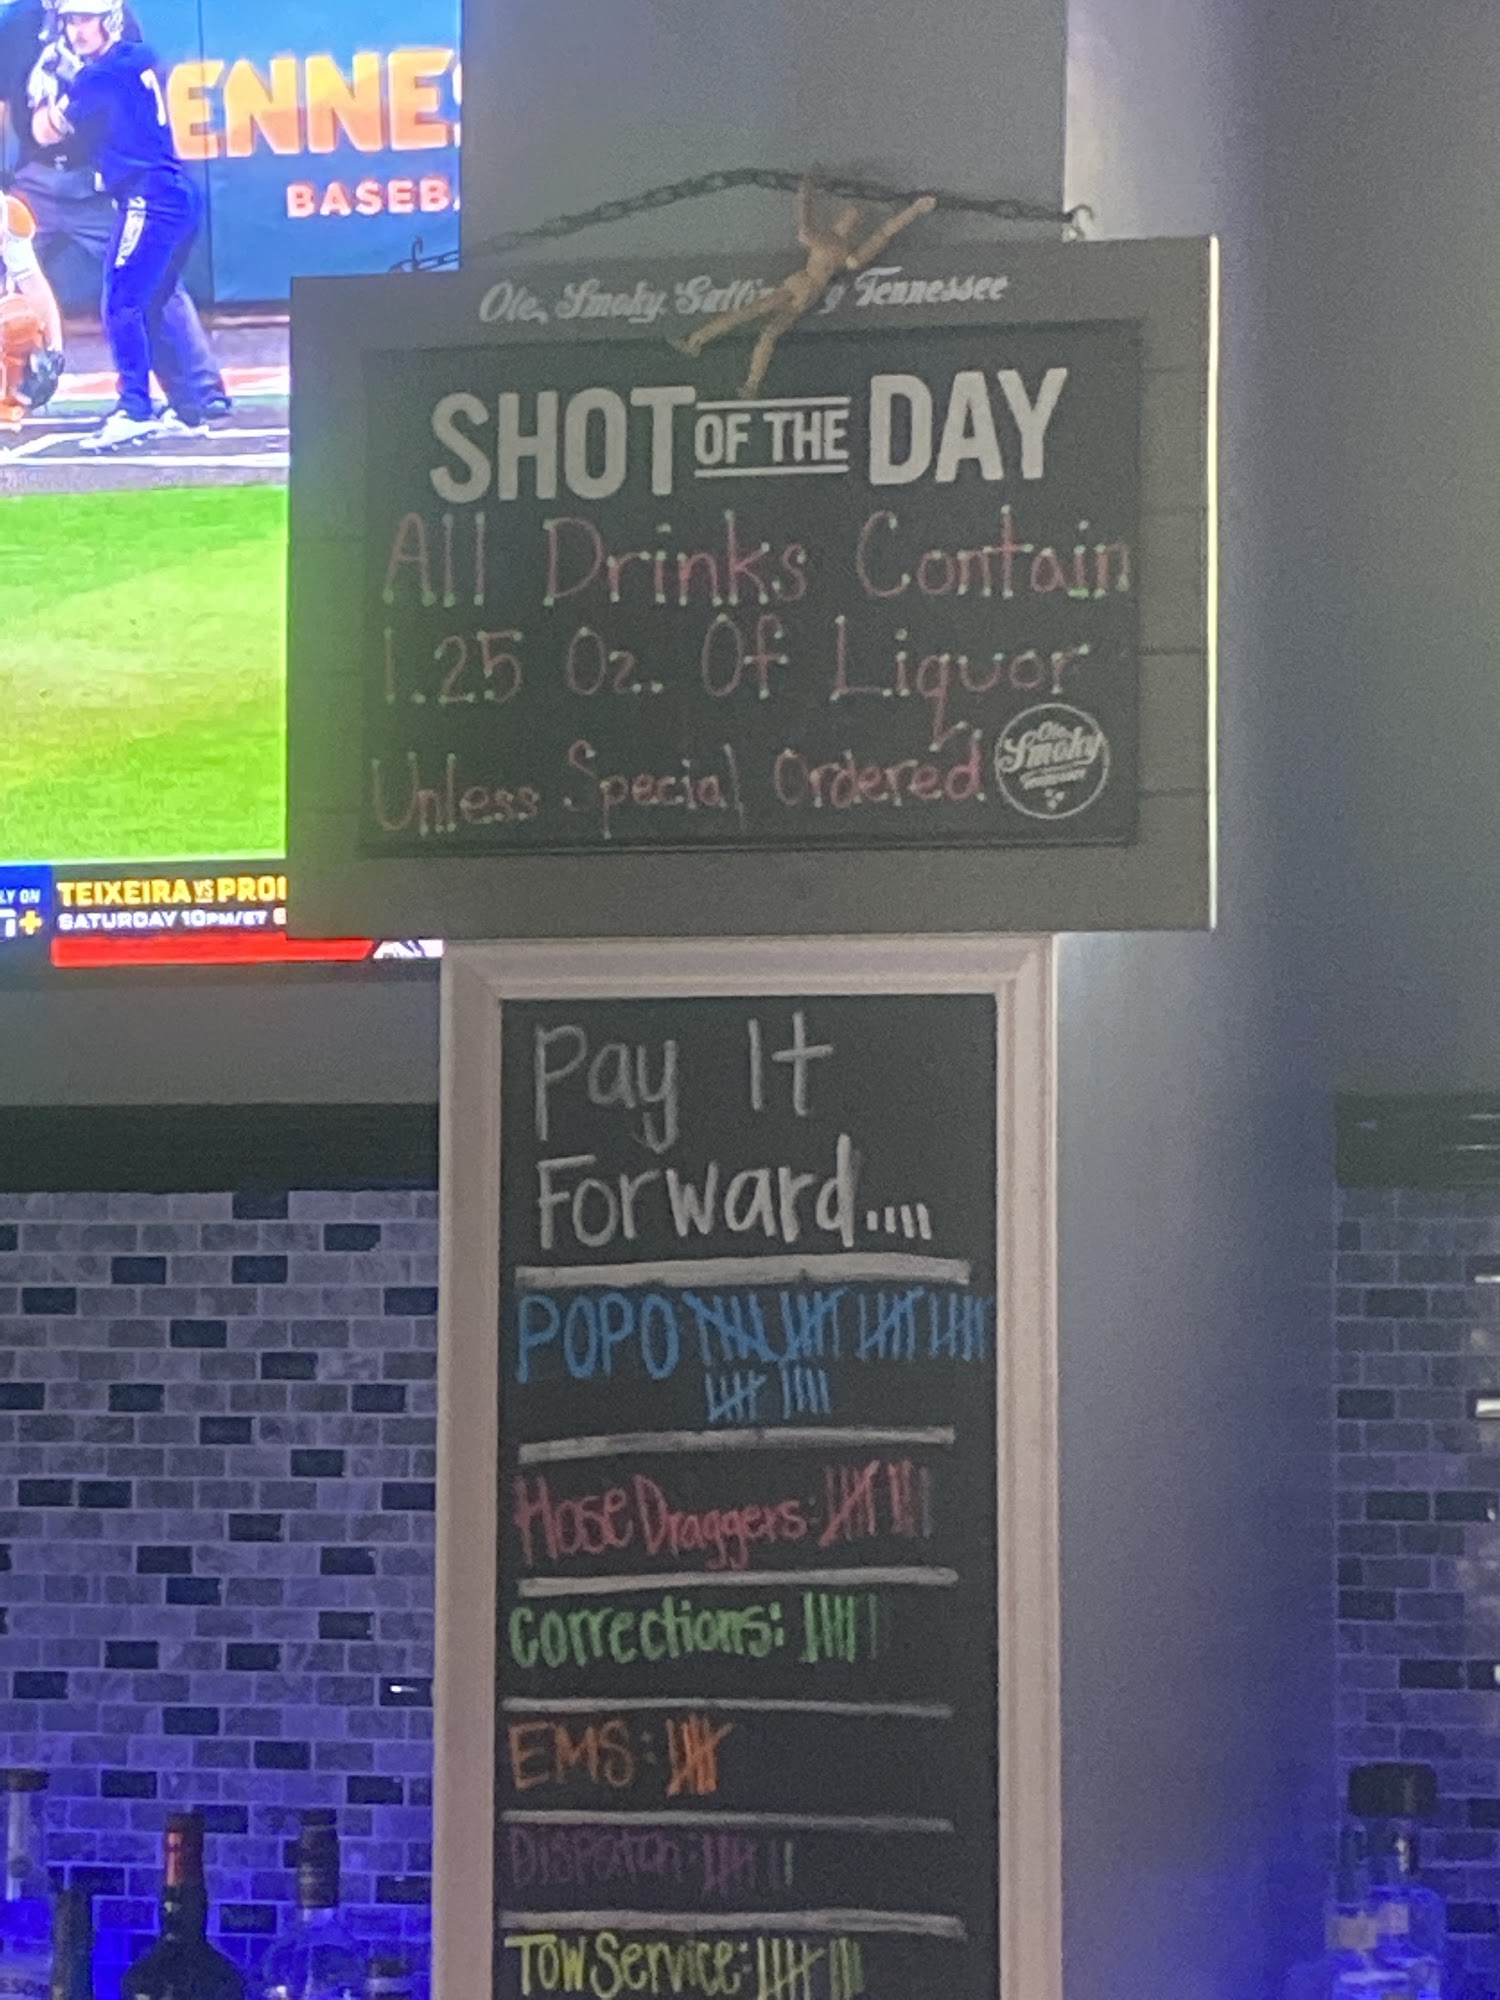 ENNES
BASEB
Ole Smoky Gatlinburg Tennessee
SHOT OF THE DAY
All Drinks Contain
1.25 Oz. Of Liquor
Unless Special Ordered
Ole
Smoky
LY ON
TEIXEIRA VS PRO
SATURDAY 10PM/ET
Pay It
Forward....
POPO
Hose Draggers:
Corrections:
EMS:
Dispatch:
Tow Service: